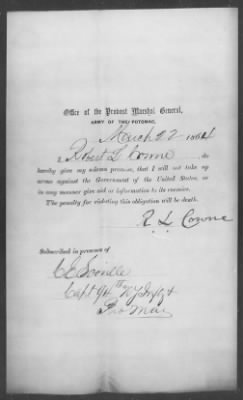 Office of the Provost Marshal General,
ARMY OF THE POTOMAC,
March 22 1864
I, Robert L Cowne, do
hereby give my solemn promise, that I will not take up
arms against the Government of the United States, or
in any manner give aid or information to its enemies.
The penalty for violating this obligation will be death.
R. L. Cowne
Subscribed in presence of
C C
Capt 94th N Y Infy &
Pro Mar